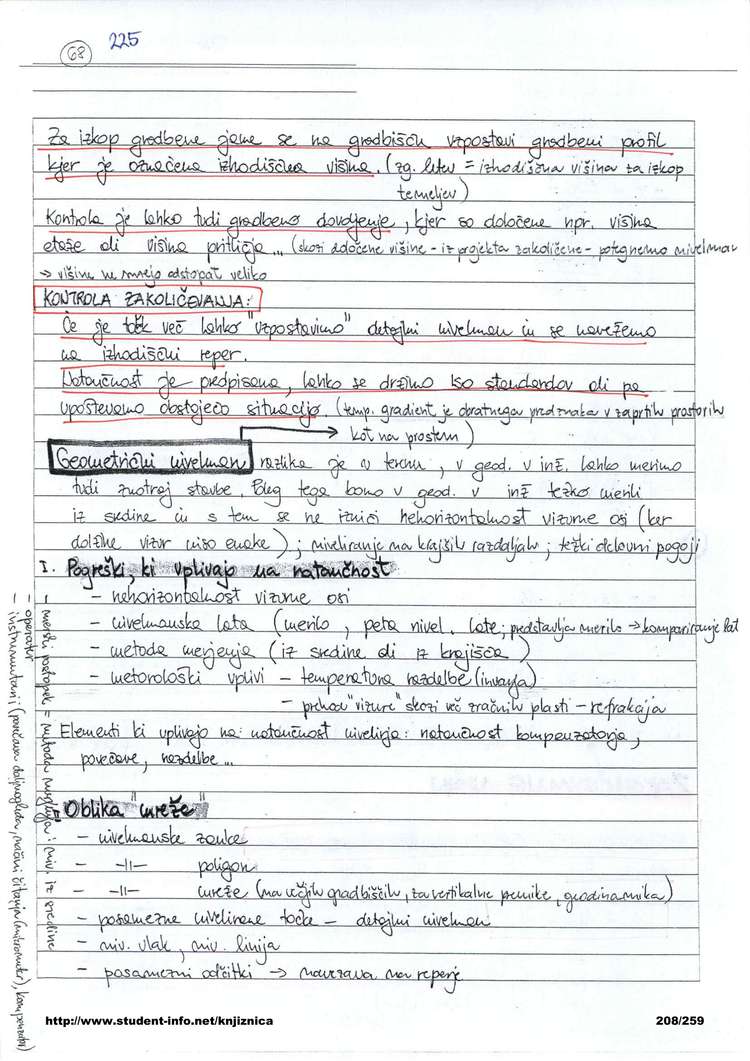 68
225
Za izkop gradbene jame se na gradbišču vzpostavi gradbeni profil
kjer je označena izhodiščna višina. (zg. letev = izhodiščna višina za izkop
temeljev)
Kontrola je lahko tudi gradbeno dovoljenje, kjer so določene npr. višina
etaže ali višina pritličja... (skozi določene višine - iz projekta zakoličene - potegnemo nivelman
→ višine ne smejo odstopat veliko
KONTROLA ZAKOLIČEVANJA:
Če je točk več lahko "vzpostavimo" detajlni nivelman in se navežemo
na izhodiščni reper.
Natančnost je predpisana, lahko se držimo ISO standardov ali pa
upoštevamo obstoječo situacijo. (temp. gradient je obratnega predznaka v zaprtih prostorih
kot na prostem)
Geometrični nivelman razlika je v terenu, v geod. v inž. lahko merimo
tudi znotraj stavbe. Poleg tega bomo v geod. v inž težko merili
iz sredine in s tem se ne izniči nehorizontalnost vizurne osi (ker
dolžine vizur niso enake); niveliranje na krajših razdaljah; težki delovni pogoji
I. Pogreški, ki vplivajo na natančnost
- nehorizontalnost vizurne osi
- nivelmanska lata (merilo, peta nivel. late; predstavlja merilo → kompariranje lat
- metoda merjenja (iz sredine ali iz krajišča)
- metorološki vplivi - temperatura razdelbe (invarja)
- prehod "vizure" skozi več zračnih plasti - refrakcija
Elementi ki vplivajo na natančnost nivelirja: natančnost kompenzatorja,
povečave, razdelbe...
II Oblika "mreže"
- nivelmanske zanke
- -||- poligon
- -||- mreže (na večjih gradbiščih, za vertikalne premike, geodinamika)
- posamezne nivelirane točke - detajlni nivelman
- niv. vlak, niv. linija
- posamezni odčitki → navezava na reperje
- merski postopek = metoda merjenja: niv. iz sredine
- operater
- instrumentarij (povečava daljnogleda, načini čitanja (mikrometer), kompenzator)
http://www.student-info.net/knjiznica
208/259